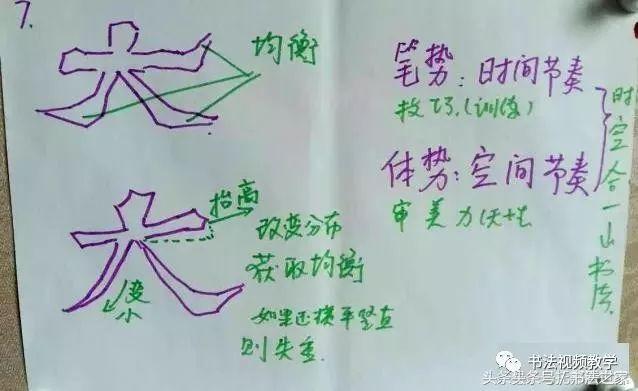 7.
大
均衡
笔势：时间节奏
技巧.(训练)
体势：空间节奏
审美
时空合一
书法
大
抬高
改变分布
获取均衡
变小
如果还横平竖直
则失重.
书法视频教学
头条号/书法之家